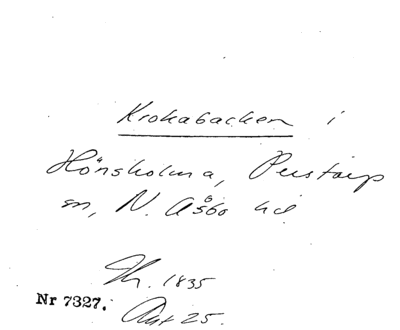 Krokabacken i
Hönsholma, Perstorp
sn, N. Åsbo hd
Th. 1835
Nr 7327.
Akt 25.